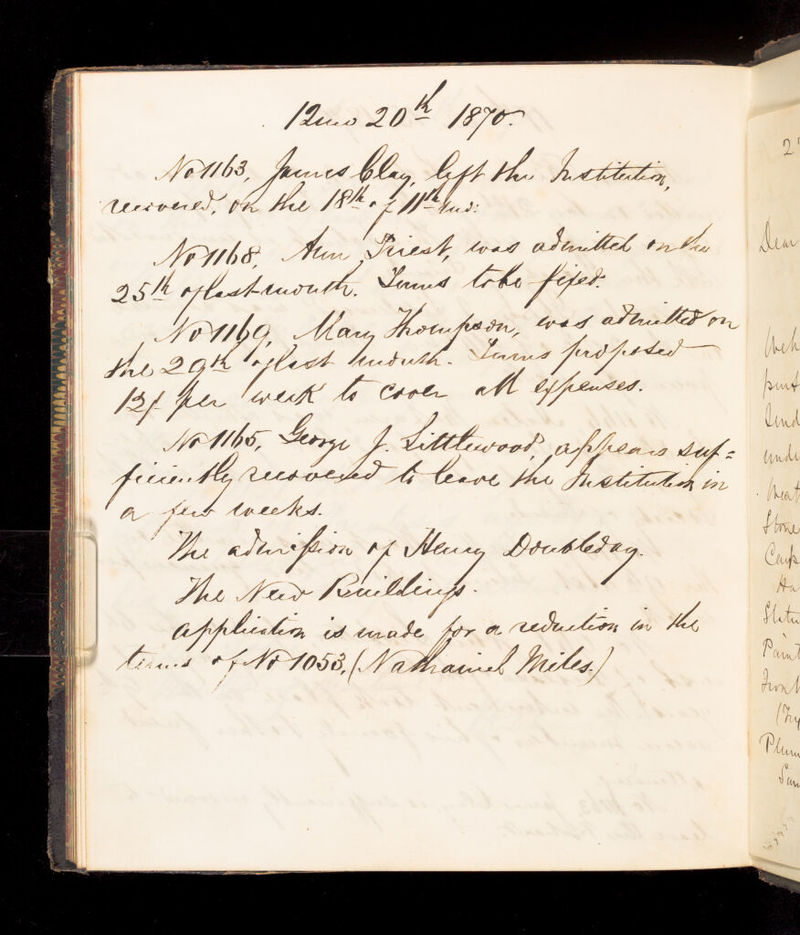 12mo 20th 1870.
No 1163, James Clay, left the Institution,
recovered, on the 18th of 11th Mo:
No 1168, Ann Priest, was admitted on the
25th of last month. Terms to be fixed.
No 1169, Mary Thompson, was admitted on
the 29th of last month. Terms proposed
12/- per week to cover all expenses.
No 1165, George J. Littlewood, appears suf=
ficiently recovered to leave the Institution in
a few weeks.
The admission of Henry Doubleday.
The New Buildings.
Application is made for a reduction in the
terms of No 1053, (Nathaniel Miles.)
2
Dear